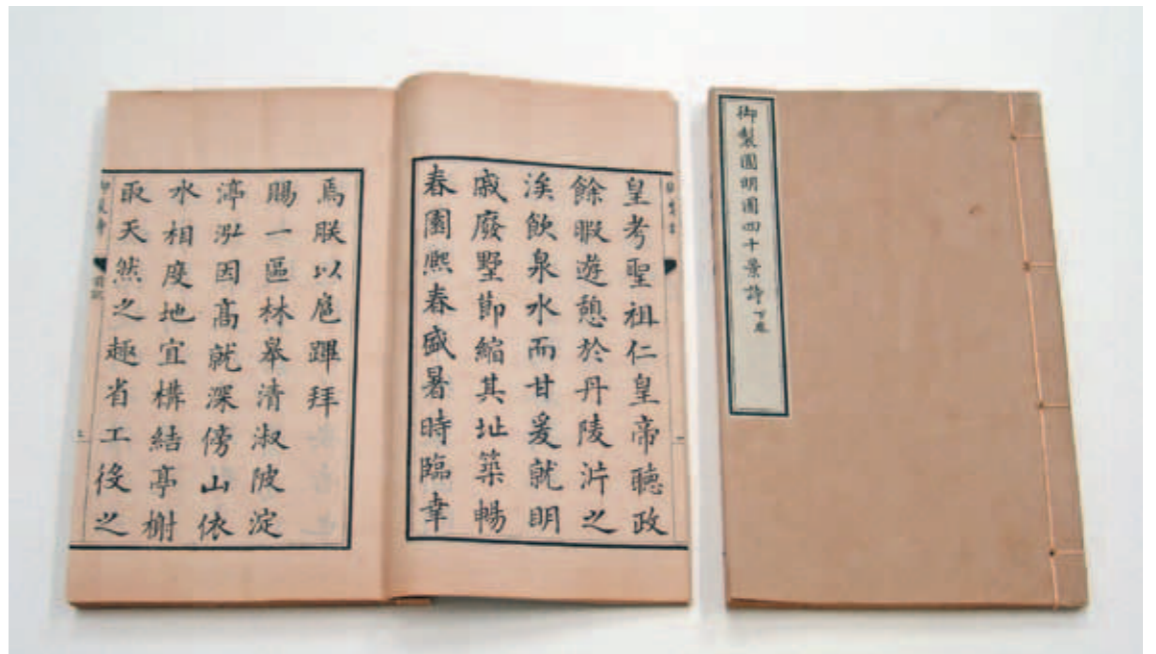 皇考聖祖仁皇帝聽政
餘暇遊憩於丹陵沜之
涘飲泉水而甘爰就明
戚廢墅節縮其址築暢
春園熙春盛暑時臨幸
焉朕以扈蹕拜
賜一區林皋清淑陂淀
渟泓因高就深傍山依
水相度地宜構結亭榭
取天然之趣省工役之
御製圓明園四十景詩 下卷